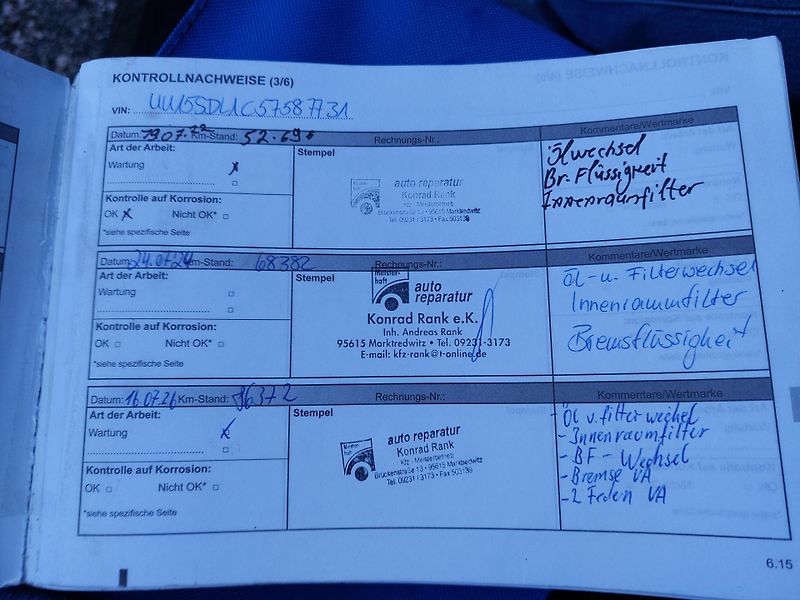 KONTROLLNACHWEISE (3/6)
VIN: UU15SDL1C57587731
Datum: 19.07.22 Km-Stand: 52.69
Rechnungs-Nr.:
Kommentare/Wertmarke
Art der Arbeit:
Wartung x
Kontrolle auf Korrosion:
OK x Nicht OK*
*siehe spezifische Seite
Stempel
auto reparatur
Konrad Rank
Kfz - Meisterbetrieb
Brückenstraße 13 • 95615 Marktredwitz
Tel. 09231 / 3173 • Fax 503139
Ölwechsel
Br.-Flüssigkeit
Innenraumfilter
Datum: 24.07.24 Km-Stand: 68382
Rechnungs-Nr.:
Kommentare/Wertmarke
Art der Arbeit:
Wartung
Kontrolle auf Korrosion:
OK Nicht OK*
*siehe spezifische Seite
Stempel
Meister-
haft
auto
reparatur
Konrad Rank e.K.
Inh. Andreas Rank
95615 Marktredwitz • Tel. 09231-3173
E-mail: kfz-rank@t-online.de
Öl-u. Filterwechsel
Innenraumfilter
Bremsflüssigkeit
Datum: 16.07.26 Km-Stand: 86372
Rechnungs-Nr.:
Kommentare/Wertmarke
Art der Arbeit:
Wartung x
Kontrolle auf Korrosion:
OK Nicht OK*
*siehe spezifische Seite
Stempel
auto reparatur
Konrad Rank
Kfz - Meisterbetrieb
Brückenstraße 13 • 95615 Marktredwitz
Tel. 09231 / 3173 • Fax 503139
- Öl u. filter wechel
- Innenraumfilter
- BF - Wechsel
- Bremse VA
- 2 Federn VA
6.15